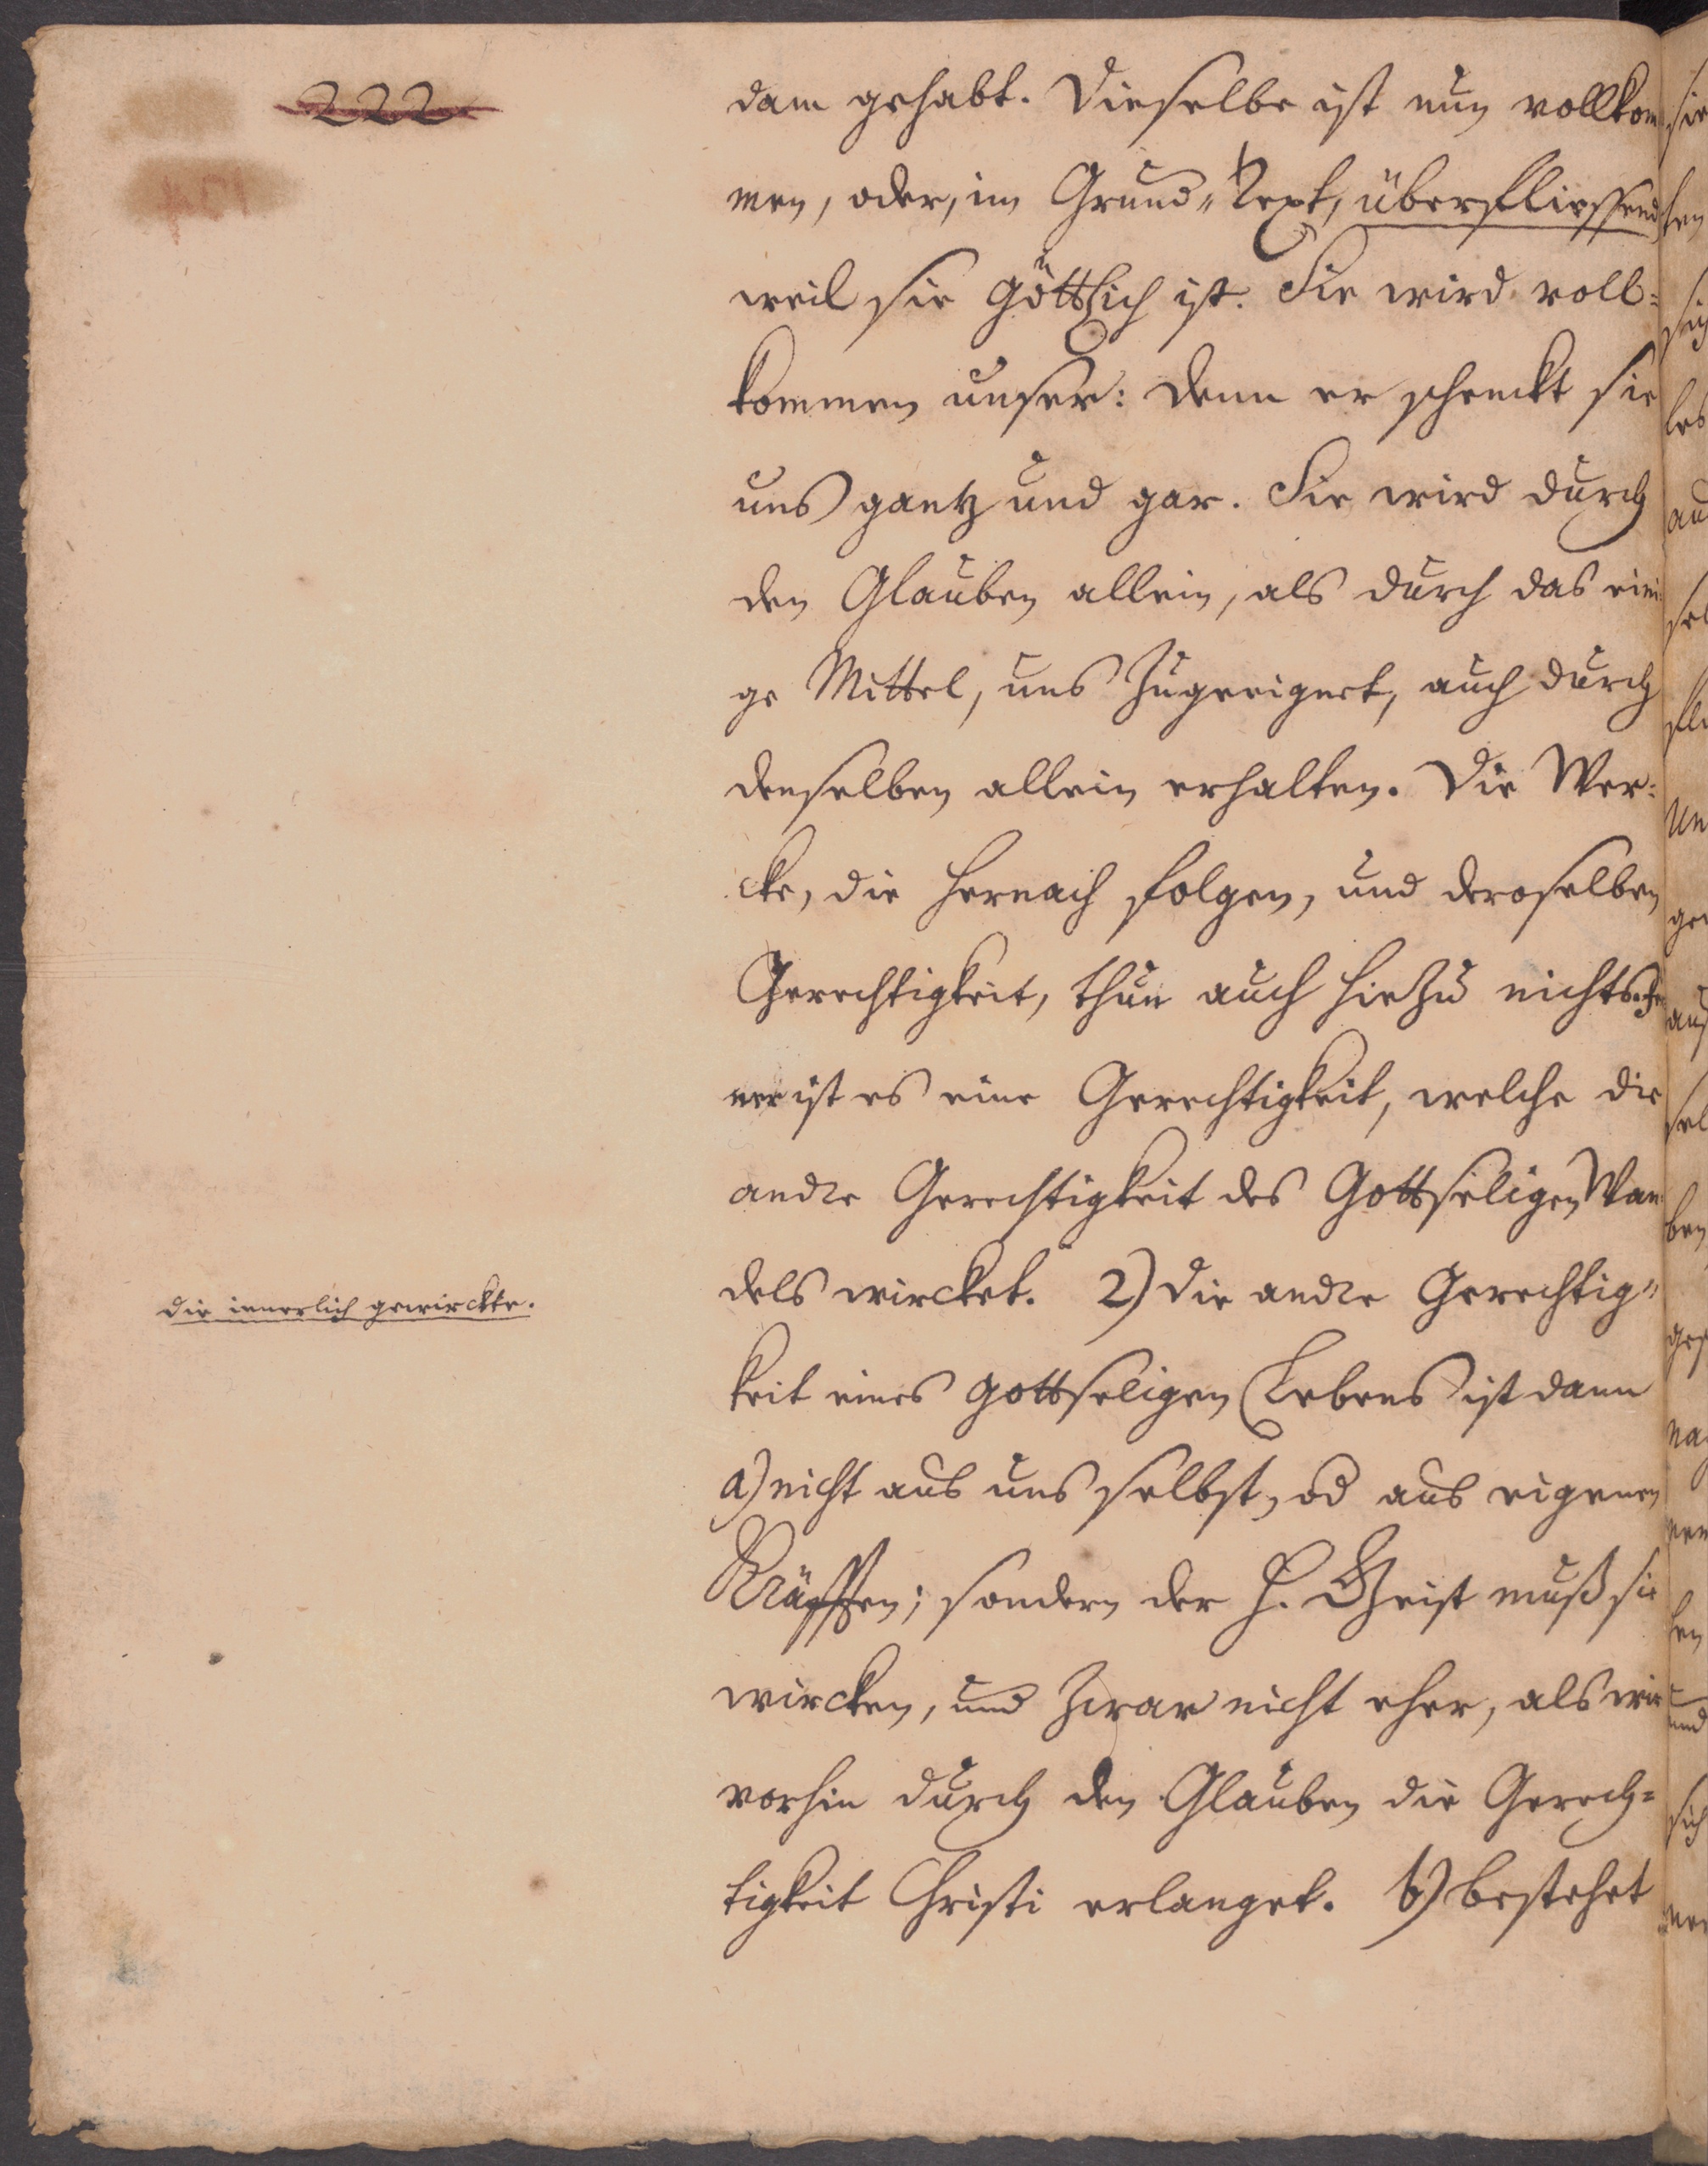 222
dam gehabt. Dieselbe ist nun vollkom
men, oder, im Grund-Text, überfliessend
weil sie göttlich ist. Sie wird voll=
kommen unser: denn er schenckt sie
uns gantz und gar. Sie wird durch
den Glauben allein, als durch das eini
ge Mittel, uns zugeeignet, auch durch
denselben allein erhalten. Die Wer=
cke, die hernach folgen, und deroselben
Gerechtigkeit, thun auch hiezu nichts. Fer
ner ist es eine Gerechtigkeit, welche die
andre Gerechtigkeit des Gottseligen Wan
dels wircket. 2) Die andre Gerechtig=
die innerlich gewirckte.
keit eines gottseligen Lebens ist dann
a) nicht aus uns selbst, od aus eigenen
Kräfften; sondern der H. Geist muß sie
wircken, und zwar nicht eher, als wir
vorhin durch den Glauben die Gerech=
tigkeit Christi erlanget. b) bestehet